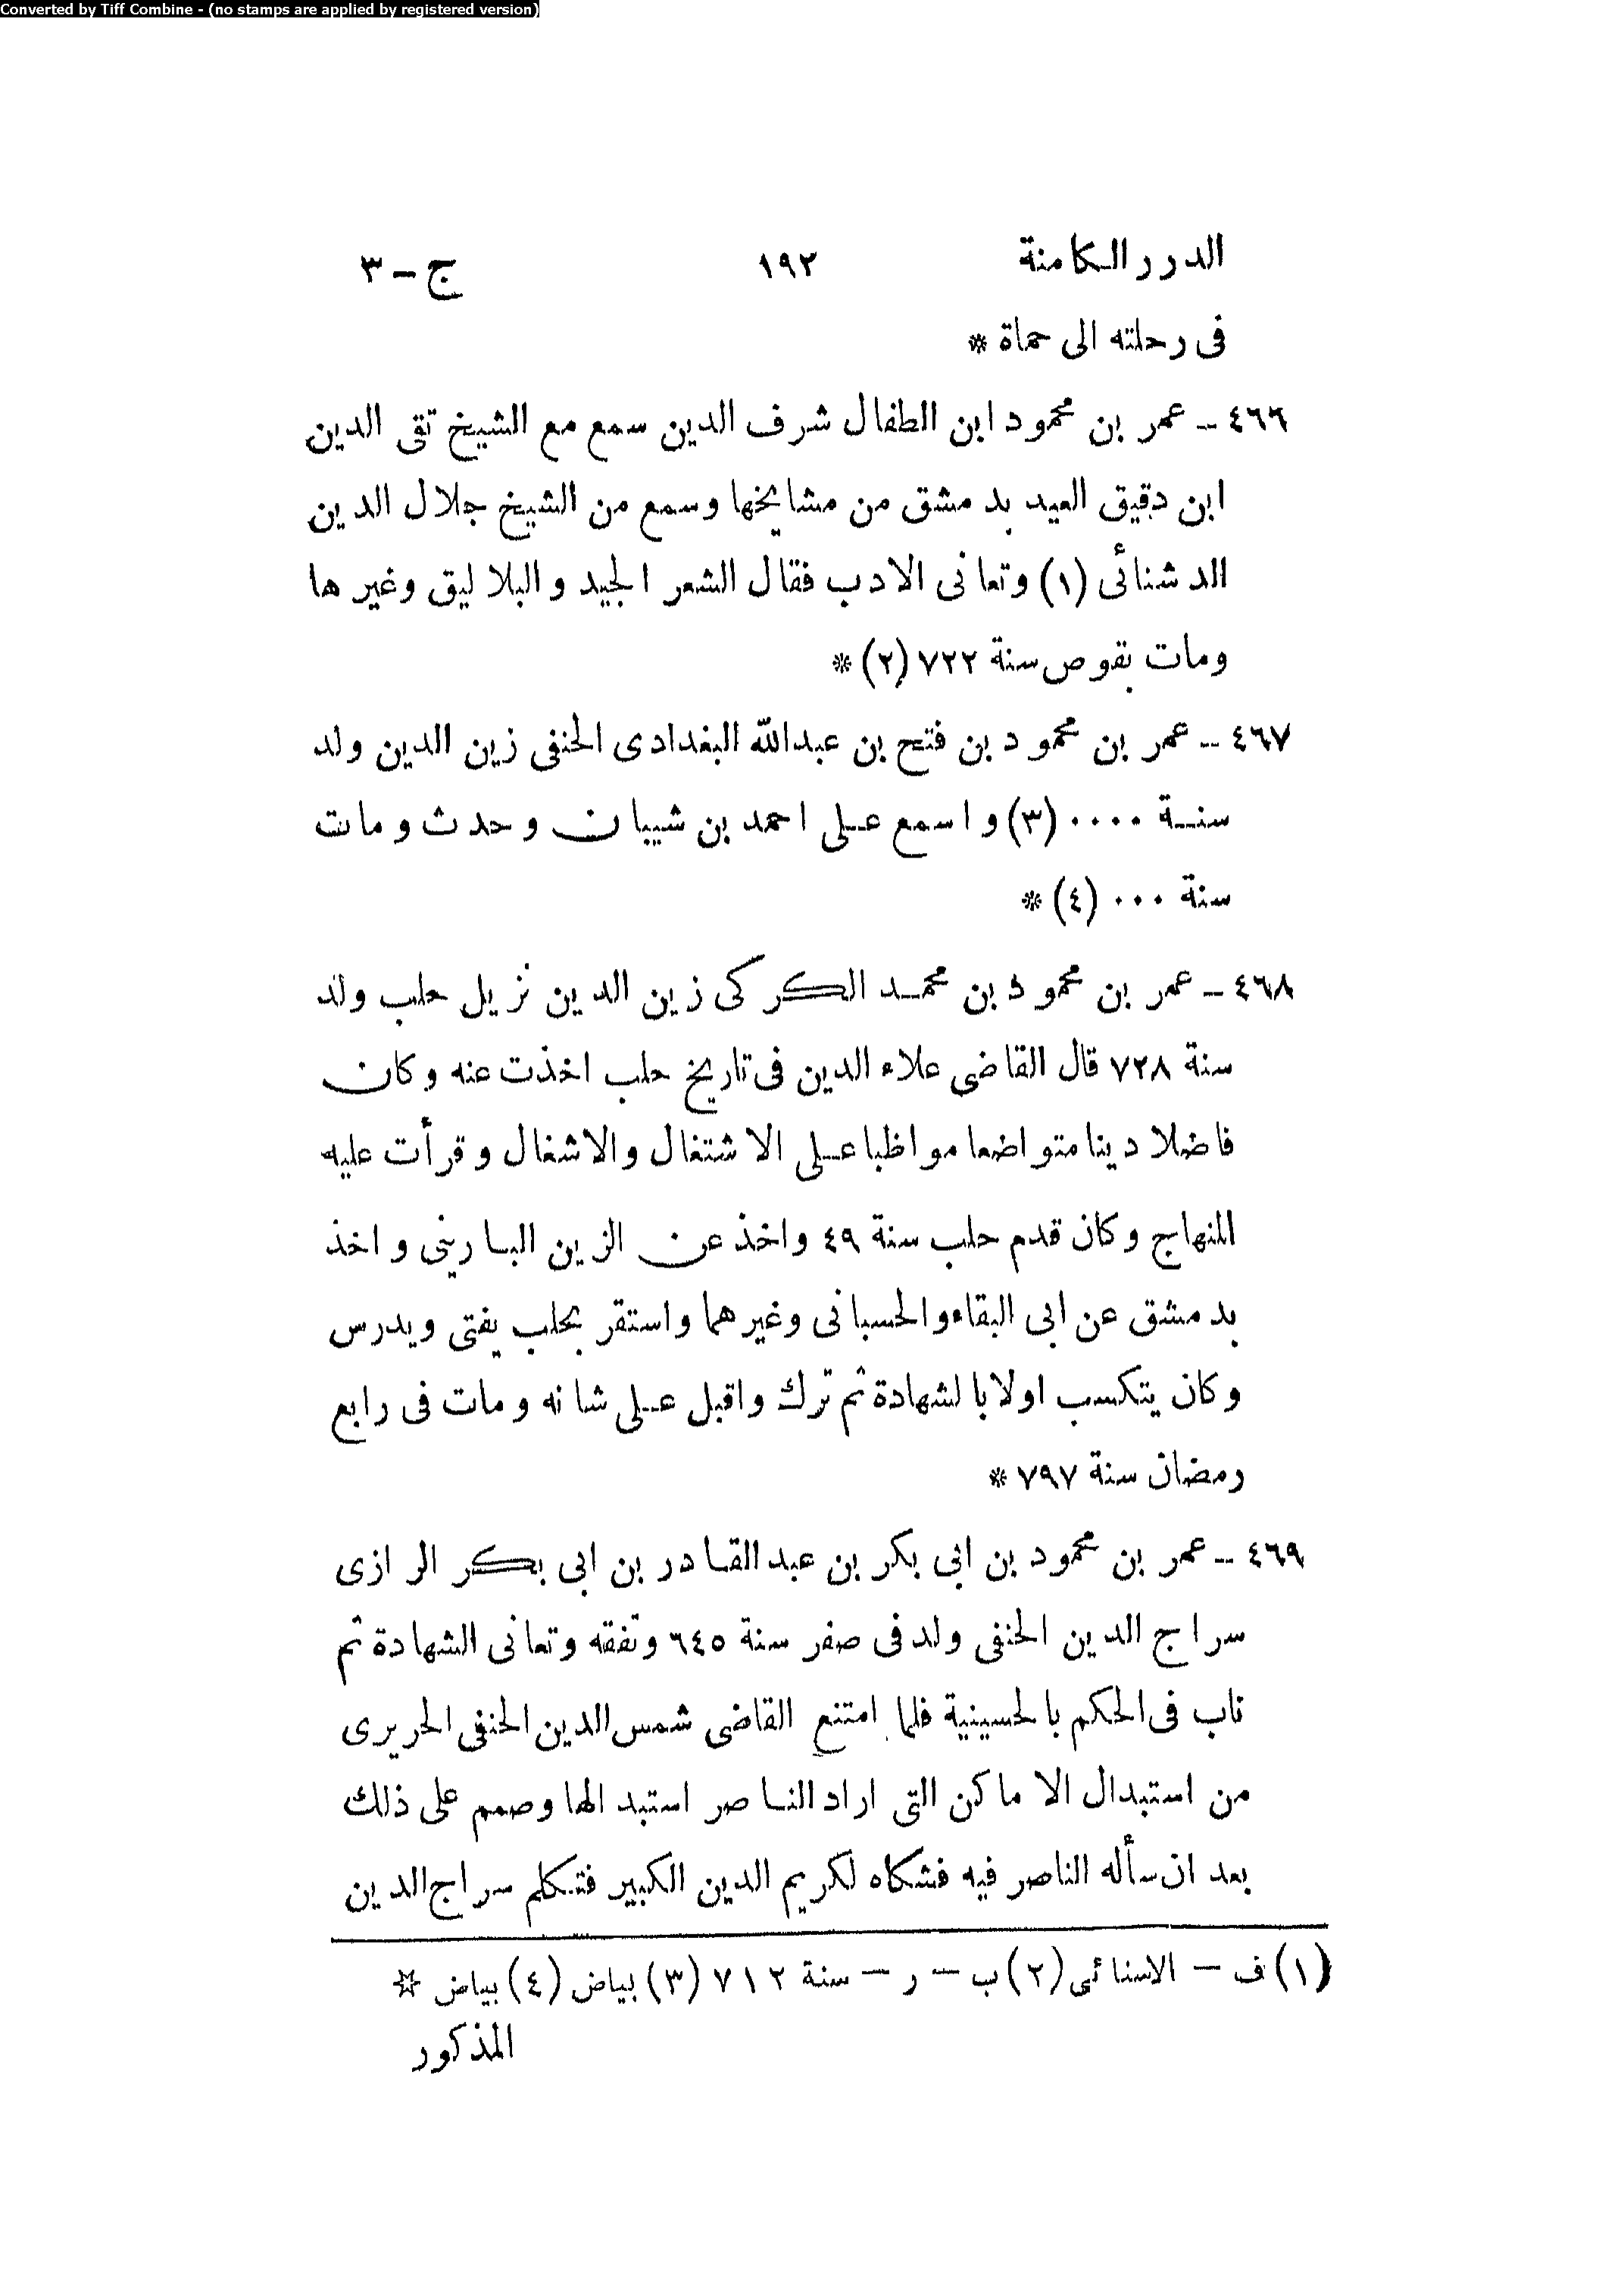 Converted by Tiff Combine - (no stamps are applied by registered version)
الدرر الكامنة ١٩٢ ج - ٣
فى رحلته الى حماة *
٤٦٦ - عمر بن محمود ابن الطفال شرف الدين سمع مع الشيخ تقى الدين
ابن دقيق العيد بدمشق من مشايخها وسمع من الشيخ جلال الدين
الدشنائى (١) وتعانى الادب فقال الشعر الجيد والبلاليق وغيرها
ومات بقوص سنة ٧٢٢ (٢) *
٤٦٧ - عمر بن محمود بن فتح بن عبدالله البغدادى الحنفى زين الدين ولد
سنة ٠٠٠٠ (٣) واسمع على احمد بن شيبان وحدث ومات
سنة ٠٠٠ (٤) *
٤٦٨ - عمر بن محمود بن محمد الكركى زين الدين نزيل حلب ولد
سنة ٧٢٨ قال القاضى علاء الدين فى تاريخ حلب اخذت عنه وكان
فاضلا دينا متواضعا مواظبا على الاشتغال والاشغال وقرأت عليه
المنهاج وكان قدم حلب سنة ٤٩ واخذ عن الزين البارينى واخذ
بدمشق عن ابى البقاء والحسبانى وغيرهما واستقر بحلب يفتى ويدرس
وكان يتكسب اولا بالشهادة ثم ترك واقبل على شانه ومات فى رابع
رمضان سنة ٧٩٧ *
٤٦٩ - عمر بن محمود بن ابى بكر بن عبد القادر بن ابى بكر الرازى
سراج الدين الحنفى ولد فى صفر سنة ٦٤٥ وتفقه وتعانى الشهادة ثم
ناب فى الحكم بالحسينية فلما امتنع القاضى شمس الدين الحنفى الحريرى
من استبدال الاماكن التى اراد الناصر استبدالها وصمم على ذلك
بعد ان سأله الناصر فيه فشكاه لكريم الدين الكبير فتكلم سراج الدين
(١) ف - الاسنائى (٢) ب - ر - سنة ٧١٢ (٣) بياض (٤) بياض *
المذكور